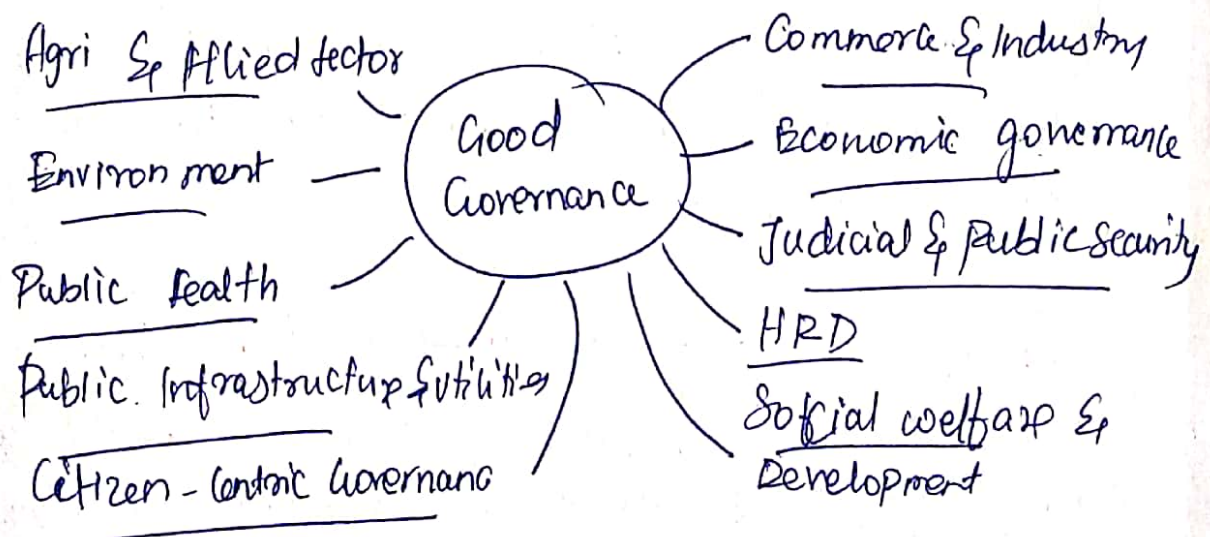 Agri & Allied sector
Environment
Public Health
Public Infrastructure & utilities
Citizen-Centric Governanc
Good
Governance
Commerce & Industry
Economic governance
Judicial & Public security
HRD
Social welfare &
Development